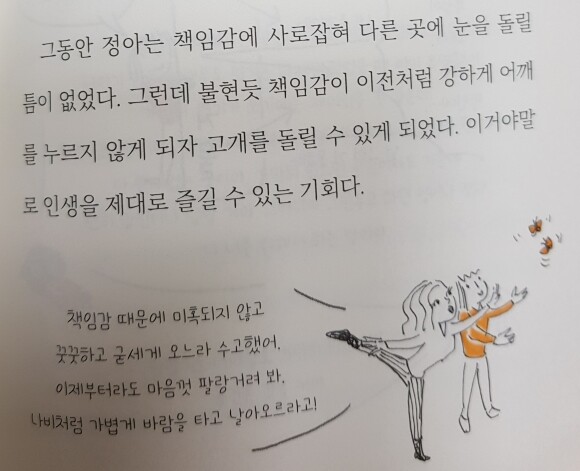 그동안 정아는 책임감에 사로잡혀 다른 곳에 눈을 돌릴
틈이 없었다. 그런데 불현듯 책임감이 이전처럼 강하게 어깨
를 누르지 않게 되자 고개를 돌릴 수 있게 되었다. 이거야말
로 인생을 제대로 즐길 수 있는 기회다.
책임감 때문에 미혹되지 않고
꿋꿋하고 굳세게 오느라 수고했어.
이제부터라도 마음껏 팔랑거려 봐.
나비처럼 가볍게 바람을 타고 날아오르라고!